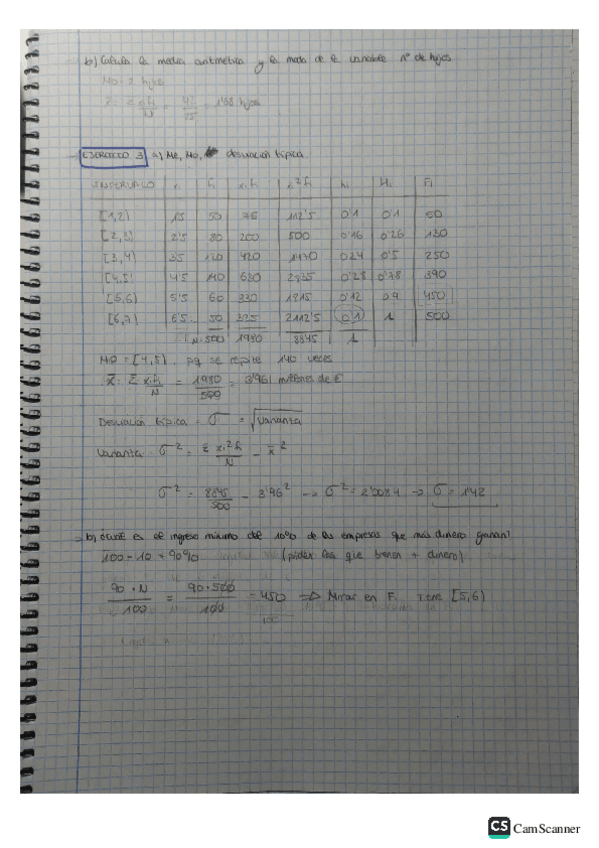 b) Calcula la media aritmética y la moda de la variable nº de hijos
Mo = 2 hijos
EJERCICIO 3 a) Me, Mo, desviación típica.
INTERVALO xi fi xi.fi xi²fi hi Hi Fi
[1,2) 1'5 50 75 112'5 0'1 0'1 50
[2,3) 2'5 80 200 500 0'16 0'26 130
[3,4) 3'5 120 420 1470 0'24 0'5 250
[4,5) 4'5 140 630 2835 0'28 0'78 390
[5,6) 5'5 60 330 1815 0'12 0'9 450
[6,7) 6'5 50 325 2112'5 0'1 1 500
N=500 1980 8845 1
Mo = [4,5) pq se repite 140 veces
x̄ = Σ xi.fi / N = 1980 / 500 = 3'961 millones de €
Desviación típica = σ = √Varianza
Varianza σ² = Σ xi²fi / N − x̄²
σ² = 8845 / 500 − 3'96² → σ² = 2'0084 → σ = 1'42
b) ¿Cuál es el ingreso mínimo del 10% de las empresas que más dinero ganan?
100 - 10 = 90% (piden las que tienen + dinero)
90 · N / 100 = 90 · 500 / 100 = 450 ⇒ Mirar en Fi [5,6)
CS CamScanner